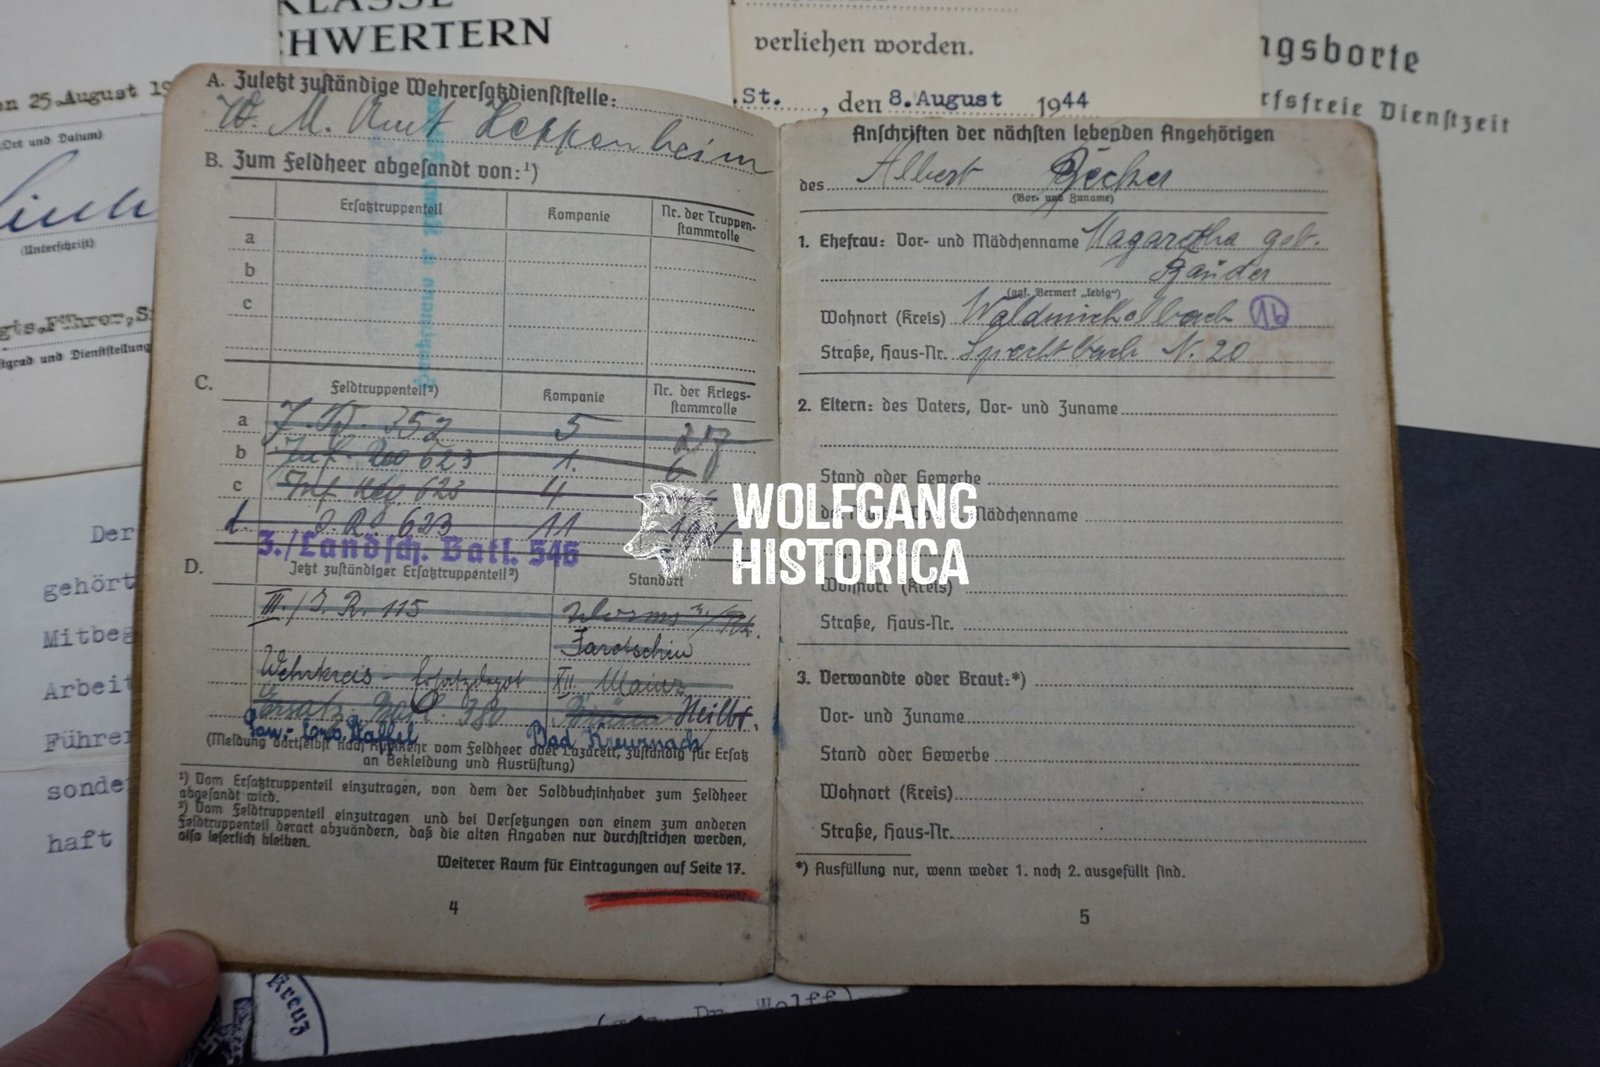 KLASSE
HWERTERN
en 25.August 19
(Ort und Datum)
(Unterschrift)
gts.Führer,S
stgrad und Dienststellung
verliehen worden.
.St. , den 8.August 1944
ngsborte
rfsfreie Dienstzeit
Der
gehört
Mitbeg
Arbeit
Führer
sonde
haft
A. Zuletzt zuständige Wehrersatzdienststelle:
W. M. Amt Heppenheim
B. Zum Feldheer abgesandt von:¹)
Ersatztruppenteil Kompanie Nr. der Truppen-
stammrolle
a
b
c
C. Feldtruppenteil²) Kompanie Nr. der Kriegs-
stammrolle
a J. R. 352 5 27
b Inf. Reg 623 1. 6
c Inf. Reg 623 4
d. J.R. 623 11
3./Landsch. Batl. 546
D. Jetzt zuständiger Ersatztruppenteil²) Standort
III./J. R. 115 Worms
Jarotschin
Wehrkreis - Ersatzdepot XII. Mainz
Ersatz. Batl. 380 Brünn Heilbr.
Bad Kreuznach
(Meldung dortselbst nach Rückkehr vom Feldheer oder Lazarett, zuständig für Ersatz
an Bekleidung und Ausrüstung)
¹) Vom Ersatztruppenteil einzutragen, von dem der Soldbuchinhaber zum Feldheer
abgesandt wird.
²) Vom Feldtruppenteil einzutragen und bei Versetzungen von einem zum anderen
Feldtruppenteil derart abzuändern, daß die alten Angaben nur durchstrichen werden,
also leserlich bleiben.
Weiterer Raum für Eintragungen auf Seite 17.
4
Anschriften der nächsten lebenden Angehörigen
des Albert Becker
(Vor- und Zuname)
1. Ehefrau: Vor- und Mädchenname Magaretha geb.
(ggf. Vermerk „ledig")
Wohnort (Kreis) Waldmichelbach 1b
Straße, Haus-Nr. Spechtbach N. 20
2. Eltern: des Vaters, Vor- und Zuname
Stand oder Gewerbe
Mädchenname
Wohnort (Kreis)
Straße, Haus-Nr.
3. Verwandte oder Braut:*)
Vor- und Zuname
Stand oder Gewerbe
Wohnort (Kreis)
Straße, Haus-Nr.
*) Ausfüllung nur, wenn weder 1. noch 2. ausgefüllt sind.
5
WOLFGANG
HISTORICA
Kreuz
Dr. Wolff)